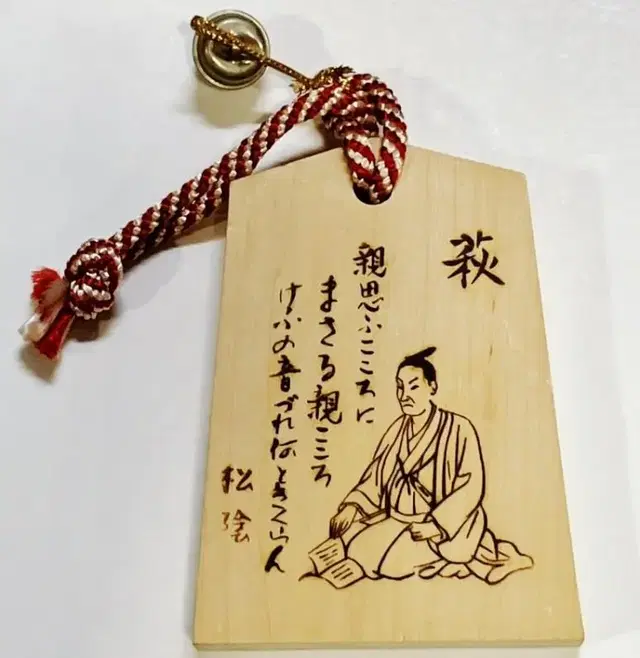 萩
親思ふこころに
まさる親こころ
けふの音づれ何ときくらん
松陰